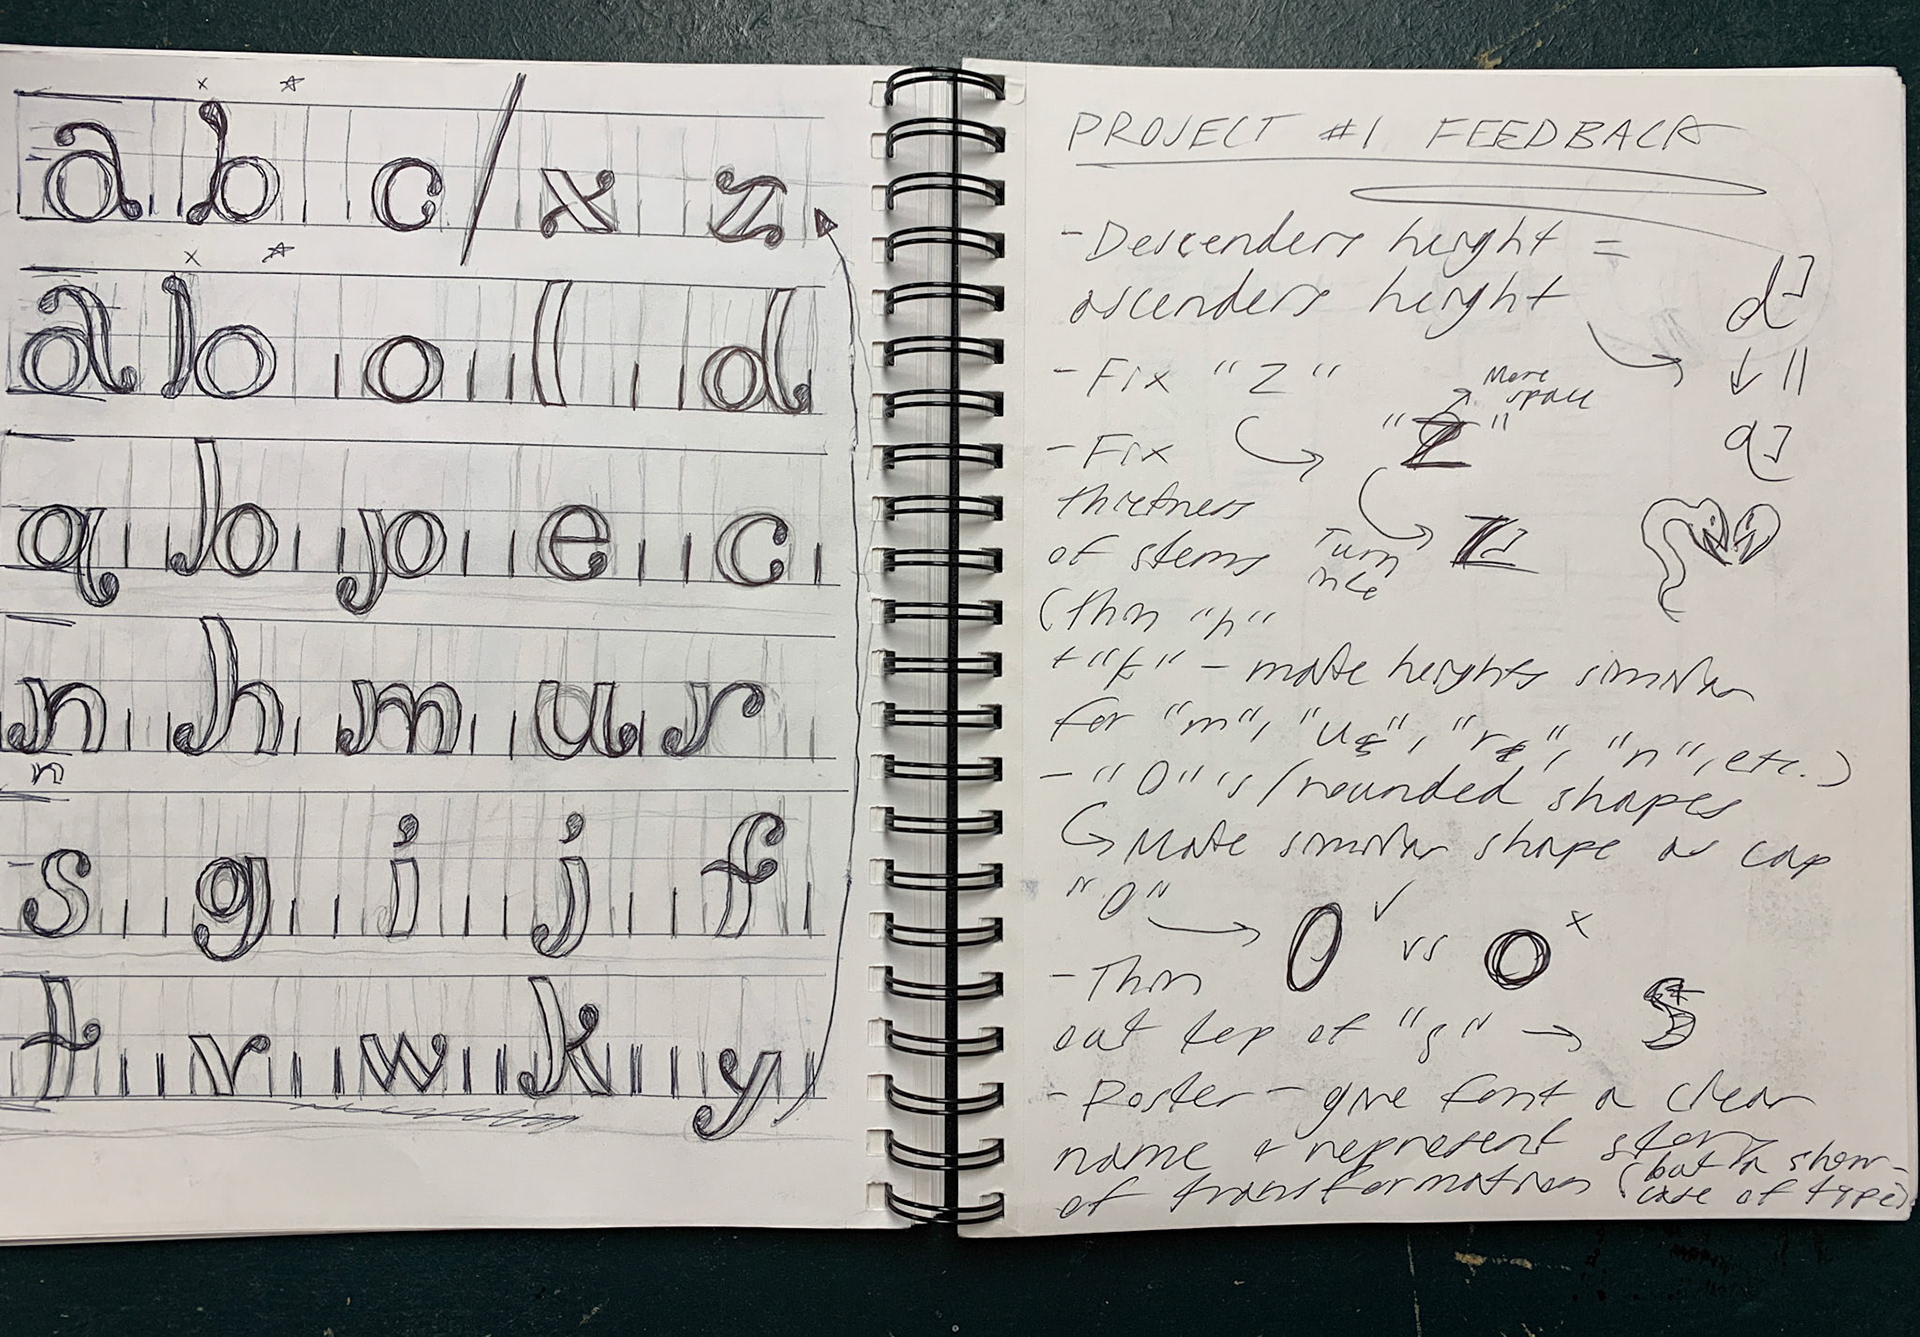 a b c / x z
a b o l d
q b p e c
n h m u r
n
s g i j f
t v w k y
PROJECT #1 FEEDBACK
- Descenders height =
ascenders height
d
- Fix "Z"
More
space
"Z"
q
- Fix
thickness
of stems
Turn
into
Z
(thin "h"
+ "k" - make heights similar
for "m", "u", "r", "n", etc.)
- "O"'s/rounded shapes
Make similar shape as cap
"O"
O ✓ vs O x
- Thin
out top of "s" → S
- Poster - give font a clear
name + represent story
of transformation (but a show-
case of type)